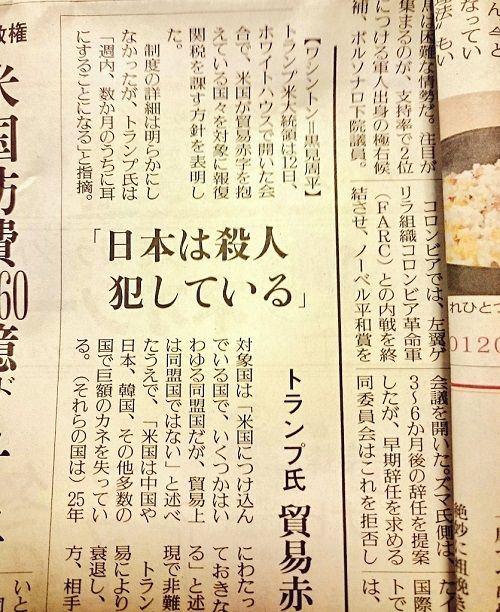 なってい
法」もい
局は困難な情勢だ。注目が
集まるのが、支持率で2位
につける軍人出身の極右候
補、ボルソナロ下院議員。
コロンビアでは、左翼ゲ
リラ組織コロンビア革命軍
（FARC）との内戦を終
結させ、ノーベル平和賞を
れひとつ
0120
絶妙に粗挽き
会議を開いた。ズマ氏側は、
3～6か月後の辞任を提案
したが、早期辞任を求める
同委員会はこれを拒否し
た。
国際
トで
は、
トランプ氏 貿易赤
「日本は殺人
犯している」
【ワシントン＝黒見周平】
トランプ米大統領は12日、
ホワイトハウスで開いた会
合で、米国が貿易赤字を抱
えている国々を対象に報復
関税を課す方針を表明し
た。
制度の詳細は明らかにし
なかったが、トランプ氏は
「週内、数か月のうちに耳
にすることになる」と指摘。
対象国は「米国につけ込ん
でいる国で、いくつかはい
わゆる同盟国だが、貿易上
は同盟国ではない」と述べ
たうえで、「米国は中国や
日本、韓国、その他多数の
国で巨額のカネを失ってい
る。（それらの国は）25年
にわたっ
ておきな
る」と述
現で非難
トラン
易により
衰退し、
方、相手
いと
政権
米国防費
60億ド